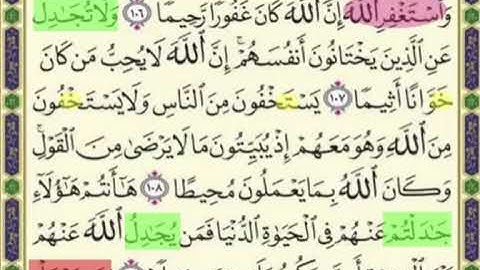 وَٱسْتَغْفِرِ ٱللَّهَ إِنَّ ٱللَّهَ كَانَ غَفُورًا رَّحِيمًا ١٠٦ وَلَا تُجَٰدِلْ
عَنِ ٱلَّذِينَ يَخْتَانُونَ أَنفُسَهُمْ ۚ إِنَّ ٱللَّهَ لَا يُحِبُّ مَن كَانَ
خَوَّانًا أَثِيمًا ١٠٧ يَسْتَخْفُونَ مِنَ ٱلنَّاسِ وَلَا يَسْتَخْفُونَ
مِنَ ٱللَّهِ وَهُوَ مَعَهُمْ إِذْ يُبَيِّتُونَ مَا لَا يَرْضَىٰ مِنَ ٱلْقَوْلِ ۚ
وَكَانَ ٱللَّهُ بِمَا يَعْمَلُونَ مُحِيطًا ١٠٨ هَٰٓأَنتُمْ هَٰٓؤُلَآءِ
جَٰدَلْتُمْ عَنْهُمْ فِى ٱلْحَيَوٰةِ ٱلدُّنْيَا فَمَن يُجَٰدِلُ ٱللَّهَ عَنْهُمْ